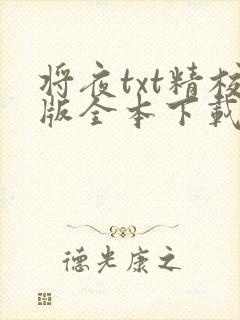 将夜txt精校
版全本下載
德光康之